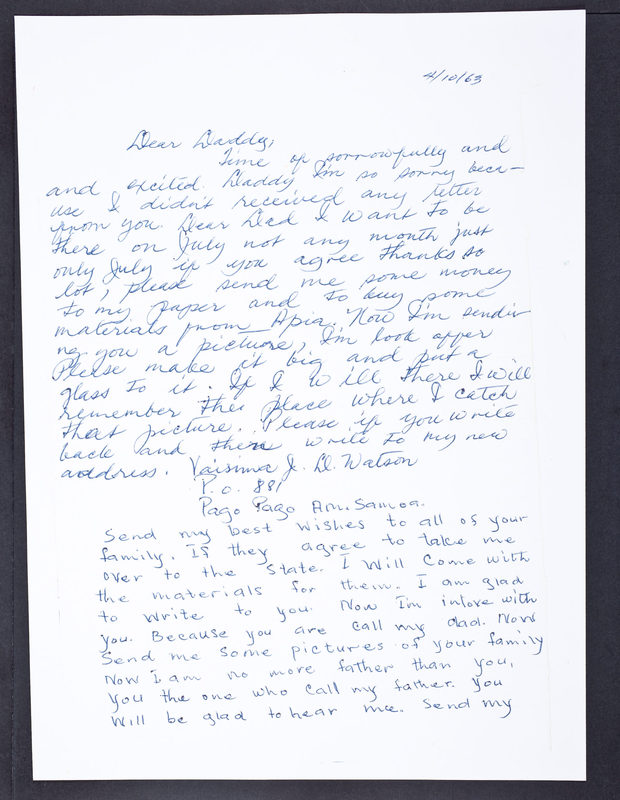 4/10/63
Dear Daddy,
Time of sorrowfully and
and excited. Daddy I'm so sorry beca-
use I didn't received any letter
from you. Dear Dad I want to be
there on July not any month just
only July if you agree thanks so
lot, please send me some money
to my paper and to buy some
materials from Apia. Now I'm sendi-
ng you a picture, I'm look offer
Please make it big and put a
glass to it. If I will there I will
remember the place where I catch
that picture. Please if you write
back and then write to my new
address. Vaisima J. D. Watson
P.O. 881
Pago Pago Am. Samoa.
Send my best wishes to all of your
family. If they agree to take me
over to the State. I will come with
the materials for them. I am glad
to write to you. Now I'm inlove with
you. Because you are call my dad. Now
Send me some pictures of your family
Now I am no more father than you,
you the one who call my father. You
will be glad to hear me. Send my